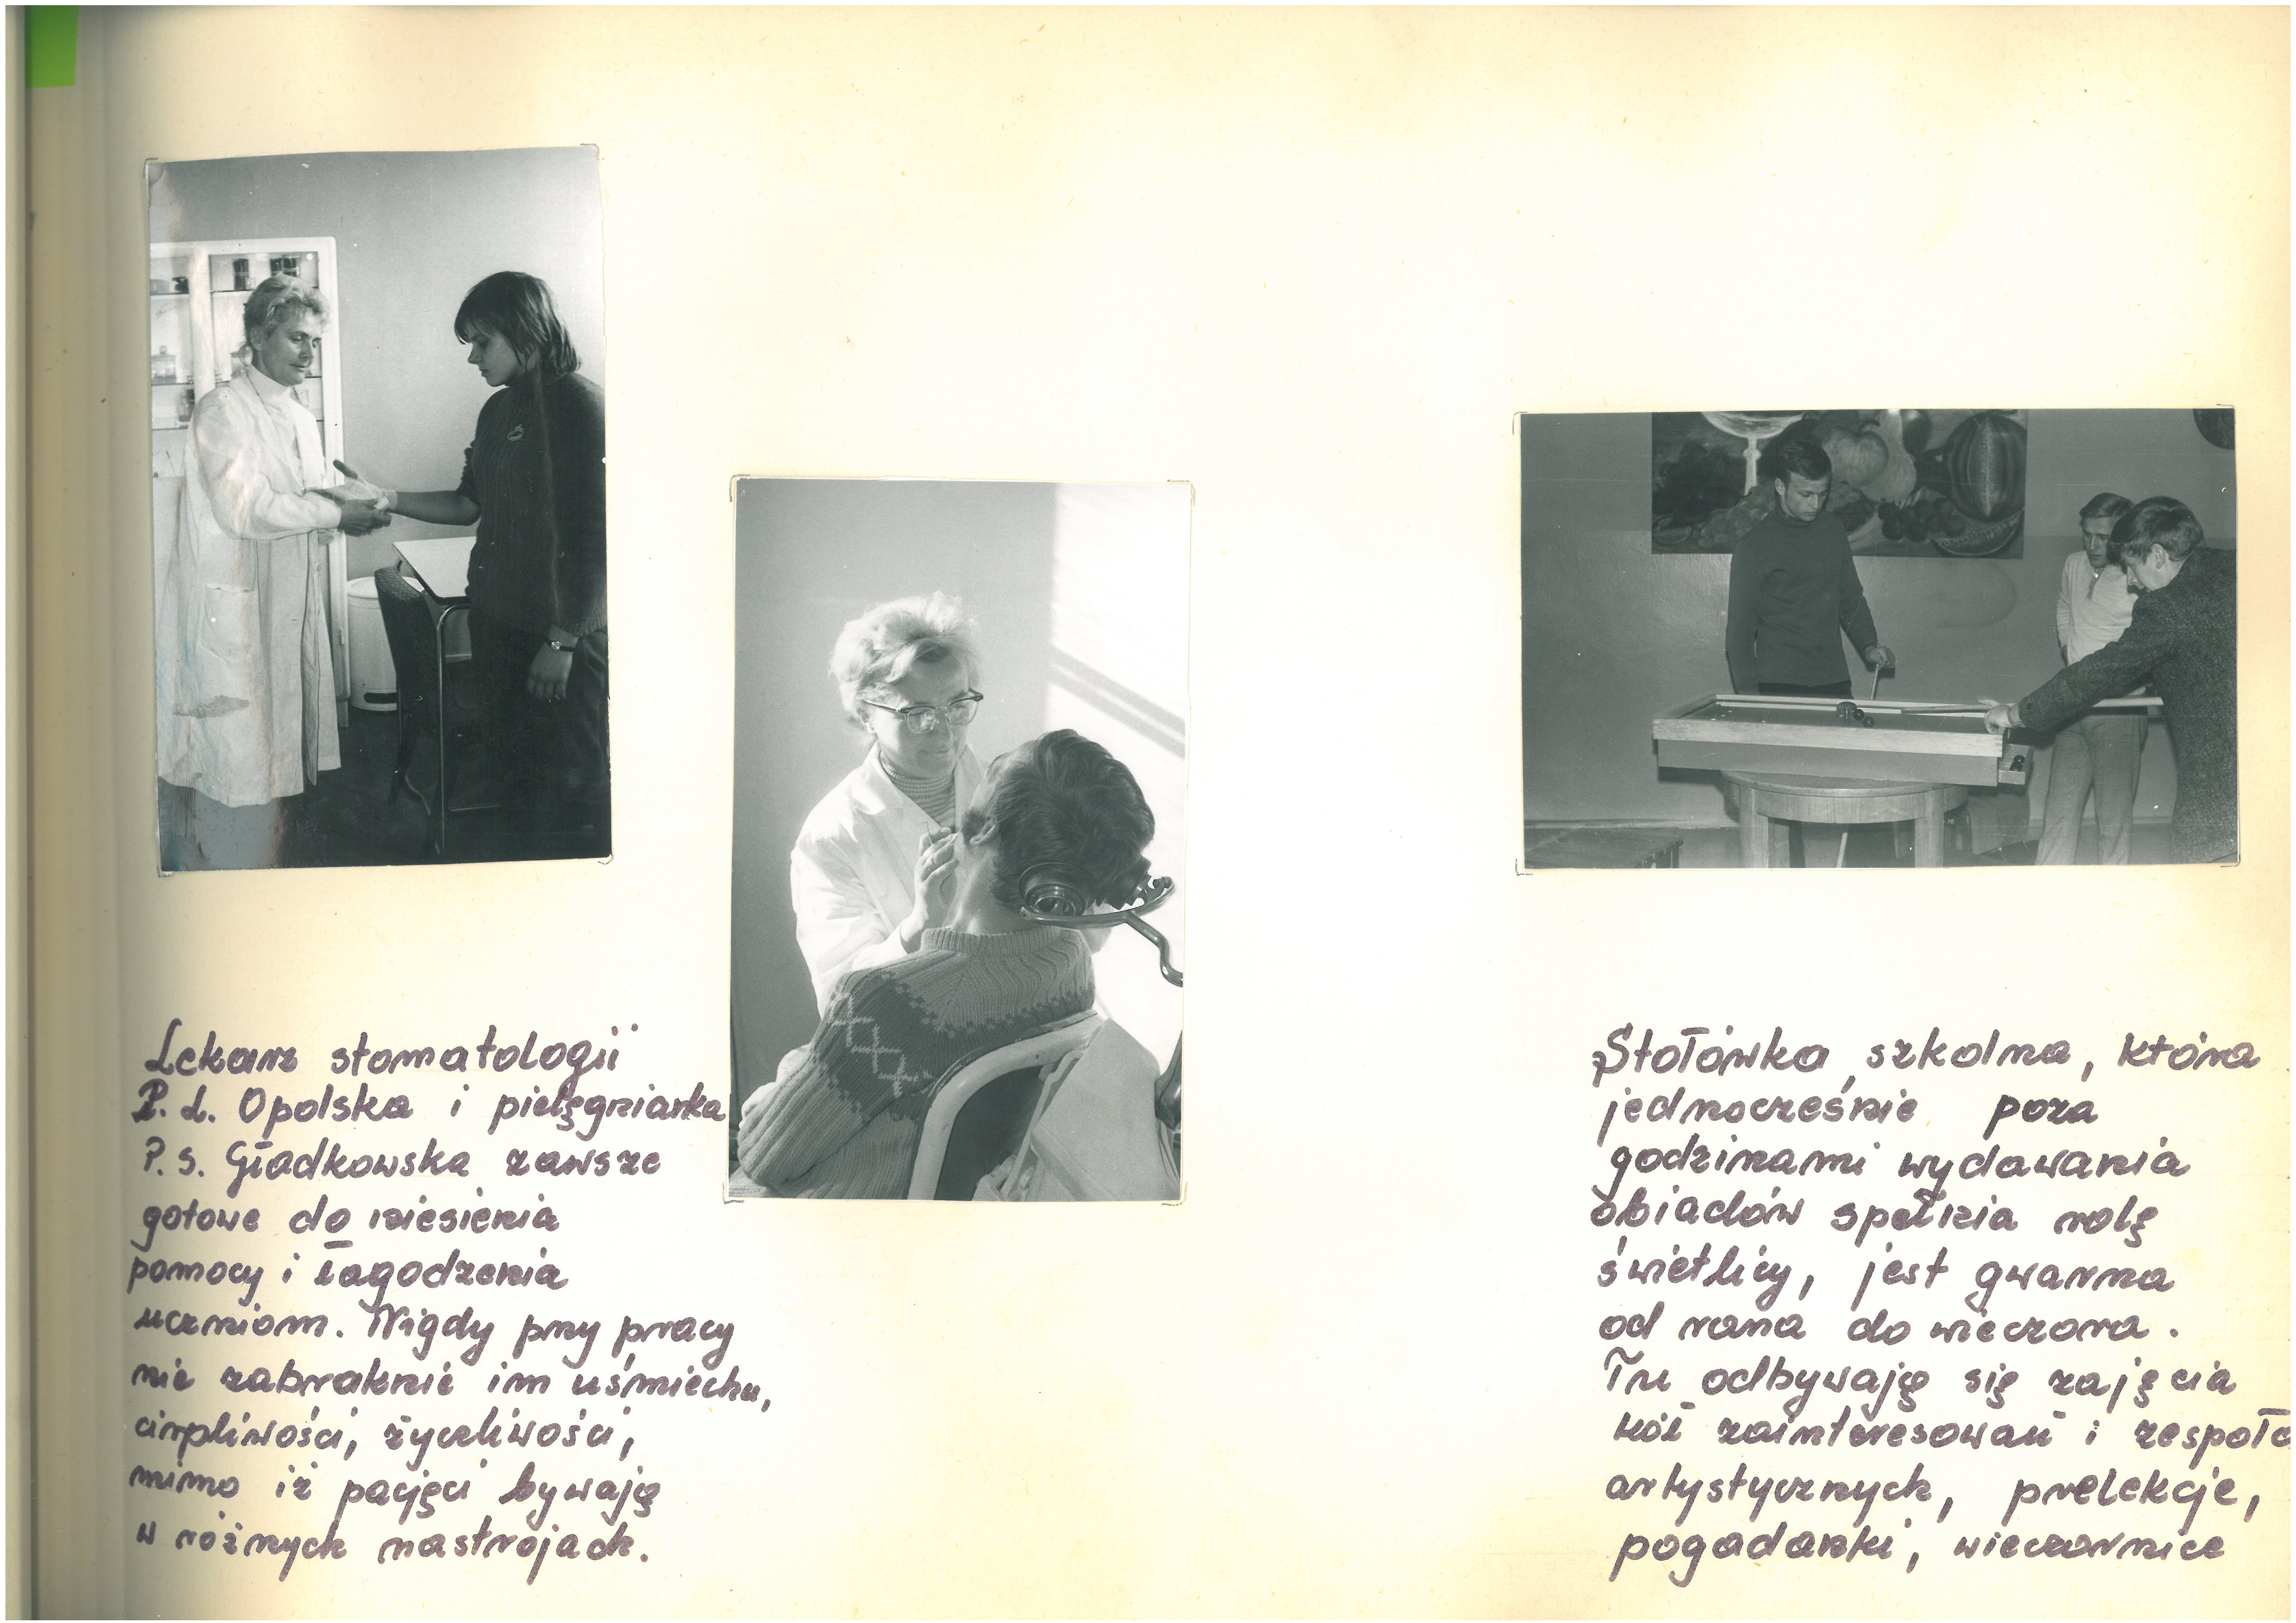 Lekarz stomatologii
P. L. Opolska i pielęgniarka
P. S. Gładkowska zawsze
gotowe do niesienia
pomocy i łagodzenia
uczniom. Nigdy przy pracy
nie zabraknie im uśmiechu,
cierpliwości, życzliwości,
mimo iż pacjęci bywają
w różnych nastrojach.
Stołówka szkolna, która
jednocześnie poza
godzinami wydawania
obiadów spełnia rolę
świetlicy, jest gwarna
od rana do wieczora.
Tu odbywają się zajęcia
kół zainteresowań i zespołó
artystycznych, prelekcje,
pogadanki, wieczornice